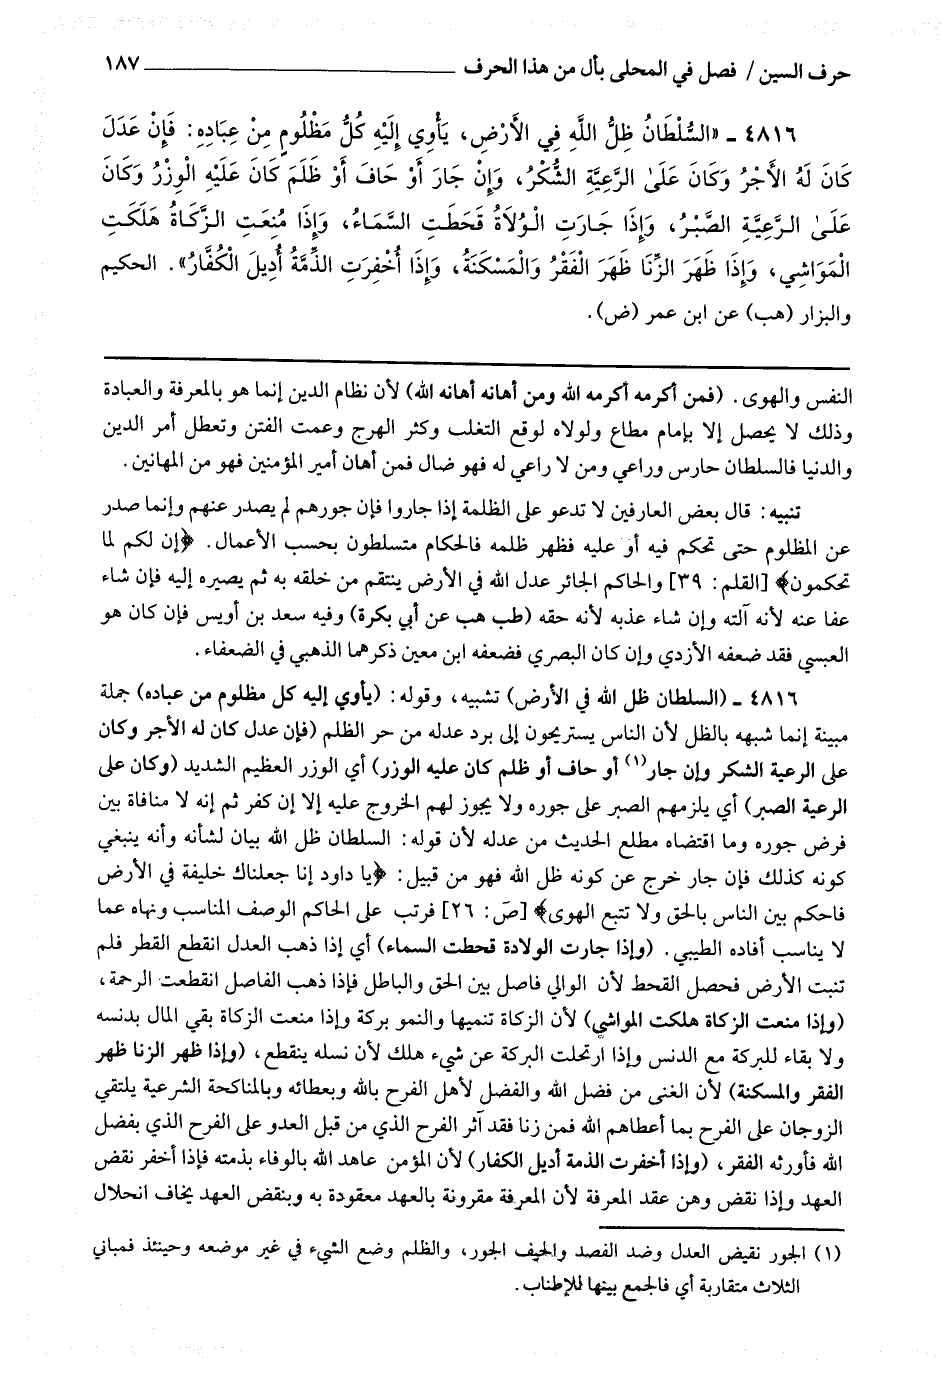 حرف السين / فصل في المحلى بأل من هذا الحرف ١٨٧
٤٨١٦ ـ «السُّلْطَانُ ظِلُّ اللَّهِ فِي الأَرْضِ، يَأْوِي إِلَيْهِ كُلُّ مَظْلُومٍ مِنْ عِبَادِهِ: فَإِنْ عَدَلَ
كَانَ لَهُ الأَجْرُ وَكَانَ عَلَىٰ الرَّعِيَّةِ الشُّكْرُ، وَإِنْ جَارَ أَوْ حَافَ أَوْ ظَلَمَ كَانَ عَلَيْهِ الْوِزْرُ وَكَانَ
عَلَىٰ الرَّعِيَّةِ الصَّبْرُ، وَإِذَا جَارَتِ الْوُلَاةُ قَحَطَتِ السَّمَاءُ، وَإِذَا مُنِعَتِ الزَّكَاةُ هَلَكَتِ
الْمَوَاشِي، وَإِذَا ظَهَرَ الزِّنَا ظَهَرَ الْفَقْرُ وَالْمَسْكَنَةُ، وَإِذَا أُخْفِرَتِ الذِّمَّةُ أُدِيلَ الْكُفَّارُ». الحكيم
والبزار (هب) عن ابن عمر (ض).
النفس والهوى. (فمن أكرمه أكرمه الله ومن أهانه أهانه الله) لأن نظام الدين إنما هو بالمعرفة والعبادة
وذلك لا يحصل إلا بإمام مطاع ولولاه لوقع التغلب وكثر الهرج وعمت الفتن وتعطل أمر الدين
والدنيا فالسلطان حارس وراعي ومن لا راعي له فهو ضال فمن أهان أمير المؤمنين فهو من المهانين.
تنبيه: قال بعض العارفين لا تدعو على الظلمة إذا جاروا فإن جورهم لم يصدر عنهم وإنما صدر
عن المظلوم حتى تحكم فيه أو عليه فظهر ظلمه فالحكام متسلطون بحسب الأعمال. ﴿إن لكم لما
تحكمون﴾ [القلم: ٣٩] والحاكم الجائر عدل الله في الأرض ينتقم من خلقه به ثم يصيره إليه فإن شاء
عفا عنه لأنه آلته وإن شاء عذبه لأنه حقه (طب هب عن أبي بكرة) وفيه سعد بن أويس فإن كان هو
العبسي فقد ضعفه الأزدي وإن كان البصري فضعفه ابن معين ذكرهما الذهبي في الضعفاء.
٤٨١٦ ـ (السلطان ظل الله في الأرض) تشبيه، وقوله: (يأوي إليه كل مظلوم من عباده) جملة
مبينة إنما شبهه بالظل لأن الناس يستريحون إلى برد عدله من حر الظلم (فإن عدل كان له الأجر وكان
على الرعية الشكر وإن جار(١) أو حاف أو ظلم كان عليه الوزر) أي الوزر العظيم الشديد (وكان على
الرعية الصبر) أي يلزمهم الصبر على جوره ولا يجوز لهم الخروج عليه إلا إن كفر ثم إنه لا منافاة بين
فرض جوره وما اقتضاه مطلع الحديث من عدله لأن قوله: السلطان ظل الله بيان لشأنه وأنه ينبغي
كونه كذلك فإن جار خرج عن كونه ظل الله فهو من قبيل: ﴿يا داود إنا جعلناك خليفة في الأرض
فاحكم بين الناس بالحق ولا تتبع الهوى﴾ [صَ: ٢٦] فرتب على الحاكم الوصف المناسب ونهاه عما
لا يناسب أفاده الطيبي. (وإذا جارت الولادة قحطت السماء) أي إذا ذهب العدل انقطع القطر فلم
تنبت الأرض فحصل القحط لأن الوالي فاصل بين الحق والباطل فإذا ذهب الفاصل انقطعت الرحمة،
(وإذا منعت الزكاة هلكت المواشي) لأن الزكاة تنميها والنمو بركة وإذا منعت الزكاة بقي المال بدنسه
ولا بقاء للبركة مع الدنس وإذا ارتحلت البركة عن شيء هلك لأن نسله ينقطع، (وإذا ظهر الزنا ظهر
الفقر والمسكنة) لأن الغنى من فضل الله والفضل لأهل الفرح بالله وبعطائه وبالمناكحة الشرعية يلتقي
الزوجان على الفرح بما أعطاهم الله فمن زنا فقد آثر الفرح الذي من قبل العدو على الفرح الذي بفضل
الله فأورثه الفقر، (وإذا أخفرت الذمة أديل الكفار) لأن المؤمن عاهد الله بالوفاء بذمته فإذا أخفر نقض
العهد وإذا نقض وهن عقد المعرفة لأن المعرفة مقرونة بالعهد معقودة به وبنقض العهد يخاف انحلال
(١) الجور نقيض العدل وضد القصد والحيف الجور، والظلم وضع الشيء في غير موضعه وحينئذ فمباني
الثلاث متقاربة أي فالجمع بينها للإطناب.